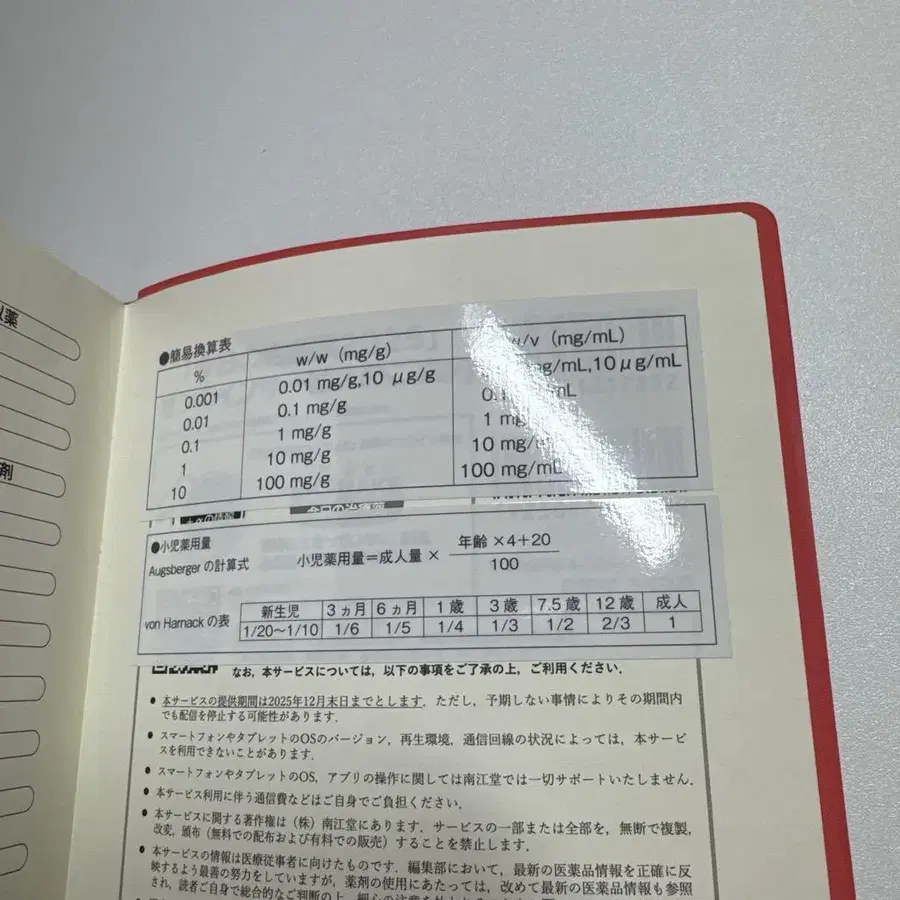 薬
剤
●簡易換算表
% w/w (mg/g) w/v (mg/mL)
0.001 0.01 mg/g,10 μg/g mg/mL,10 μg/mL
0.01 0.1 mg/g 0.1 mL
0.1 1 mg/g 1
1 10 mg/g 10 mg/
10 100 mg/g 100 mg/mL
●小児薬用量
Augsberger の計算式 小児薬用量=成人量 × 年齢 ×4+20
100
von Harnack の表
新生児 3ヵ月 6ヵ月 1歳 3歳 7.5歳 12歳 成人
1/20〜1/10 1/6 1/5 1/4 1/3 1/2 2/3 1
なお,本サービスについては,以下の事項をご了承の上,ご利用ください.
● 本サービスの提供期間は2025年12月末日までとします.ただし,予期しない事情によりその期間内
でも配信を停止する可能性があります.
● スマートフォンやタブレットのOSのバージョン,再生環境,通信回線の状況によっては,本サービ
スを利用できないことがあります.
● スマートフォンやタブレットのOS,アプリの操作に関しては南江堂では一切サポートいたしません.
● 本サービス利用に伴う通信費などはご自身でご負担ください.
● 本サービスに関する著作権は(株)南江堂にあります.サービスの一部または全部を,無断で複製,
改変,頒布(無料での配布および有料での販売)することを禁止します.
● 本サービスの情報は医療従事者に向けたものです.編集部において,最新の医薬品情報を正確に反
映するよう最善の努力をしていますが,薬剤の使用にあたっては,改めて最新の医薬品情報も参照
され,読者ご自身で総合的なご判断の上,細心の注意を